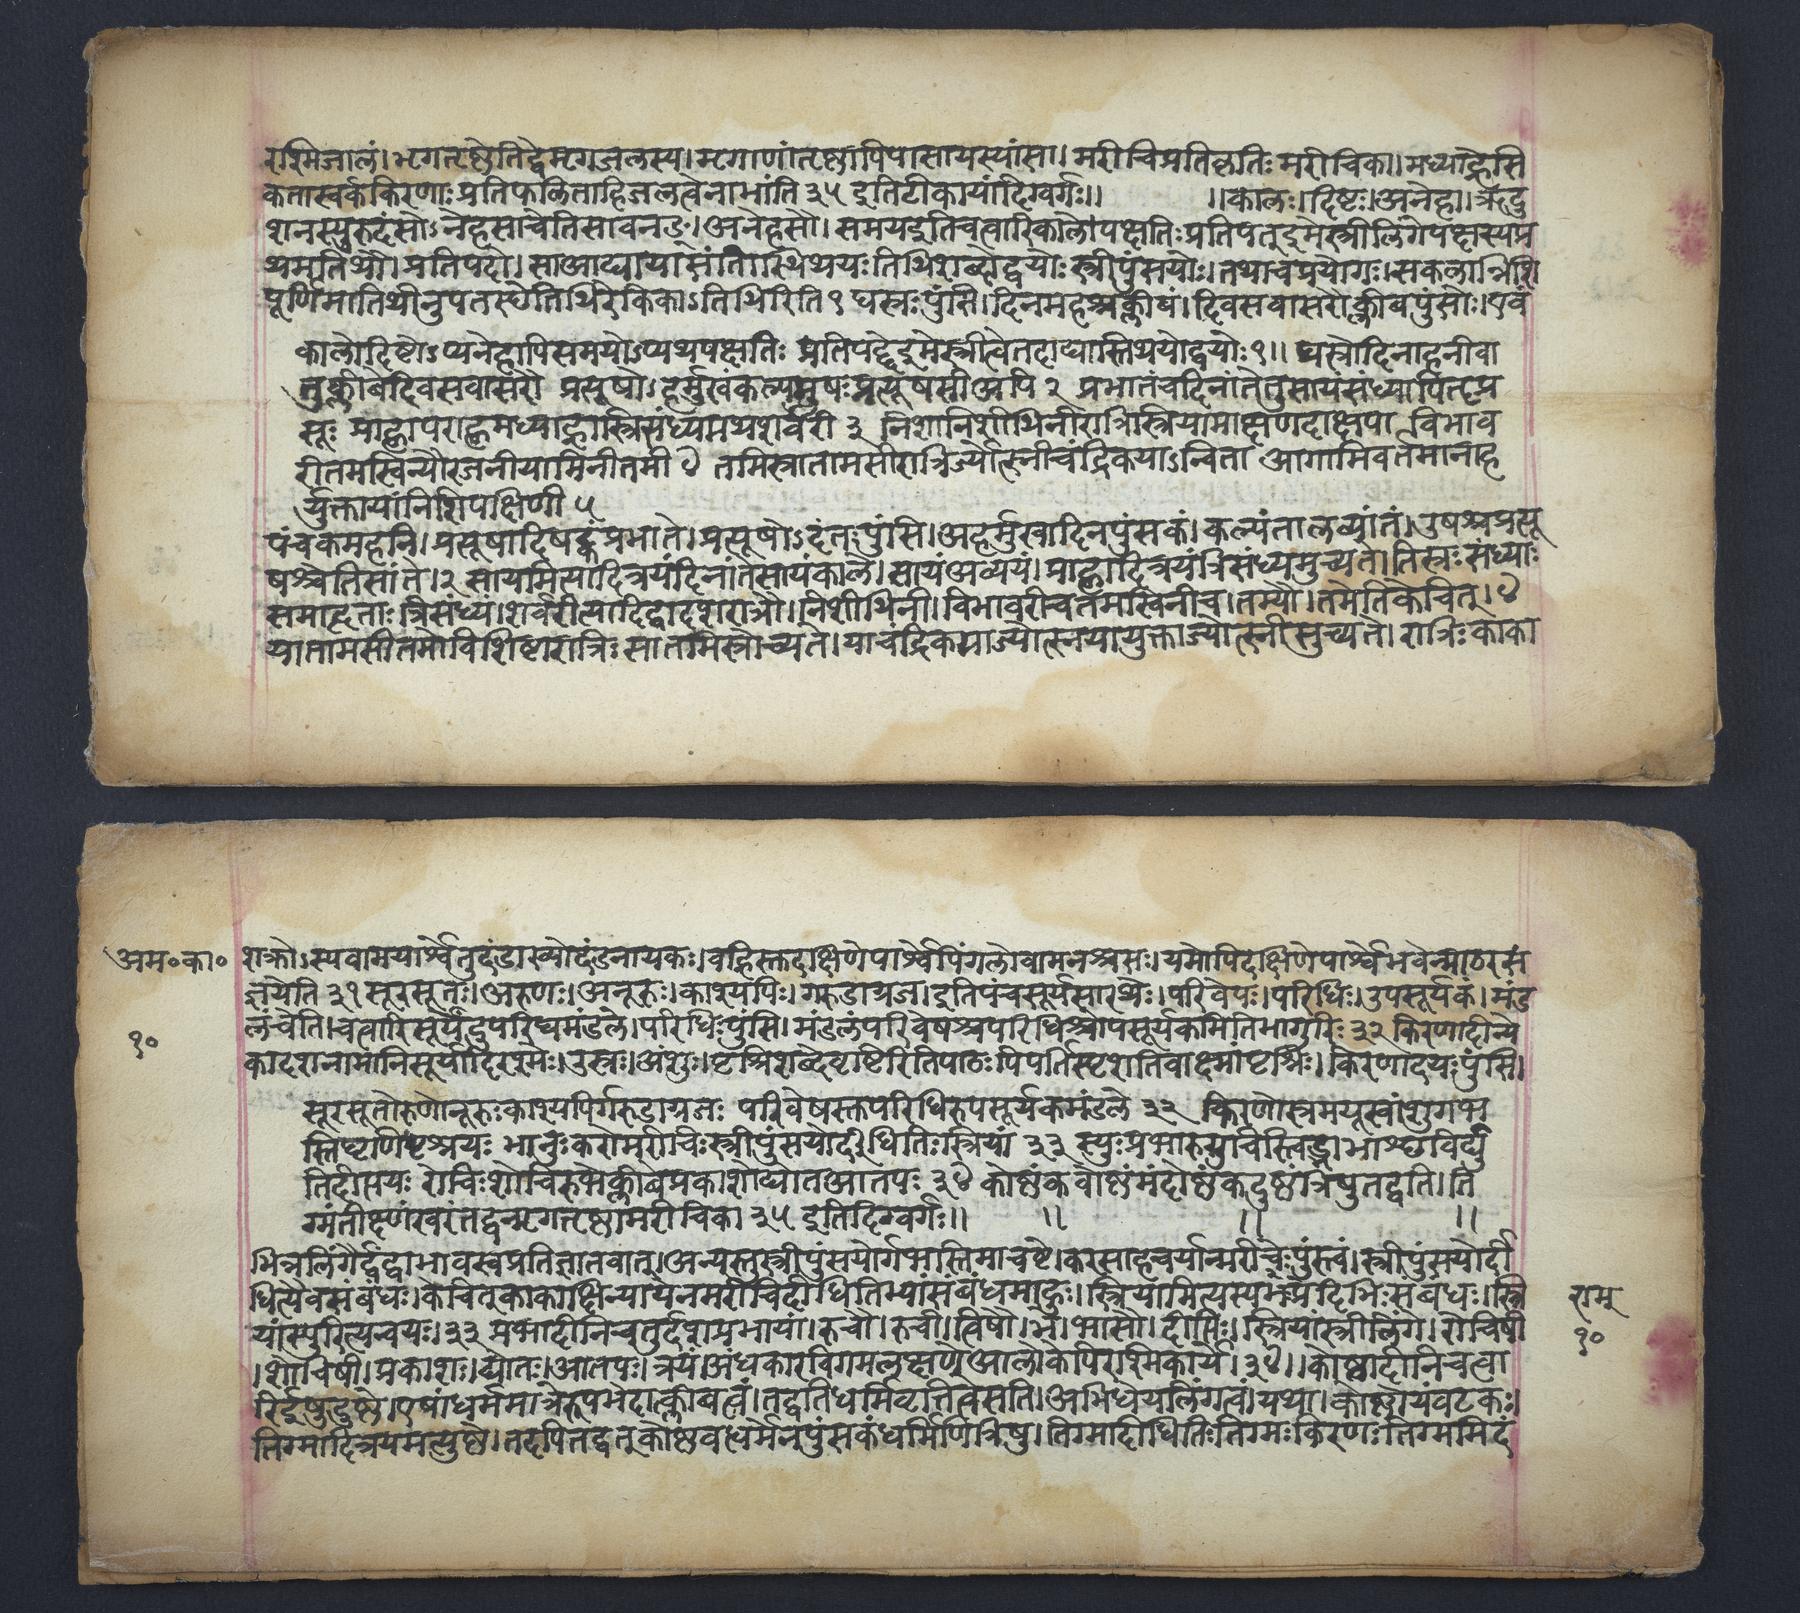 रश्मिजालं। मृगतृष्णेतिद्वेमृगजलस्य। मृगाणांतृष्णापिपासायस्यांसा। मरीचिप्रतिकृतिः मरीचिका। मध्याह्नेसि
कतास्वर्ककिरणाः प्रतिफलिताहिजलत्वेनाभांति ३५ इतिटीकायांदिग्वर्गः।। ।।कालः। दिष्टः। अनेहा। ऋदु
शनस्पुरुदंसोऽनेहसांचेतिसावनङ्। अनेहसौ। समयइतिचत्वारिकाले। पक्षतिः प्रतिपत् इमेस्त्रीलिंगेपक्षस्यप्र
थमतिथौ। प्रतिपदौ। साआद्यायासांतास्तिथयः तिथिशब्दोद्वयोः स्त्रीपुंसयोः। तथाचप्रयोगः। सकलान्निशि
पूर्णिमातिथीनुपतस्थेतिथिरेकिकाऽतिथिरिति १ घस्रः पुंसि। दिनमहश्चक्लीबं। दिवसवासरौक्लीबपुंसोः। एवं
कालोदिष्टोऽप्यनेहापिसमयोऽप्यथपक्षतिः प्रतिपद्द्वेइमेस्त्रीत्वेतदाद्यास्तिथयोद्वयोः १।। घस्रोदिनाहनीवा
तुक्लीबेदिवसवासरौ प्रत्यूषोऽहर्मुखंकल्यमुषःप्रत्यूषसीअपि २ प्रभातंचदिनांतेतुसायंसंध्यापितृप्र
सूः प्राह्णापराह्णमध्याह्नास्त्रिसंध्यमथशर्वरी ३ निशानिशीथिनीरात्रिस्त्रियामाक्षणदाक्षपा विभाव
रीतमस्विन्यौरजनीयामिनीतमी ४ तमिस्रातामसीरात्रिर्ज्योत्स्नीचंद्रिकयाऽन्विता आगामिवर्तमानाह
र्युक्तायांनिशिपक्षिणी ५
पंचकमहनि। प्रत्यूषादिषट्कंप्रभाते। प्रत्यूषोऽदंतःपुंसि। अहर्मुखादिनपुंसकं। कल्यंतालव्यांतं। उषश्चप्रत्यू
षश्चेतिसांते। २ सायमित्यादित्रयंदिनांतेसायंकाले। सायंअव्ययं। प्राह्णादित्रयंत्रिसंध्यमुच्यते। तिस्रः संध्याः
समाहृताः त्रिसंध्यं। शर्वरीत्यादिद्वादशरात्रौ। निशीथिनी। विभावरीचतमस्विनीच। तम्यौ। तमेतिकेचित्। ४
यातामसीतमोविशिष्टारात्रिः सातमिस्रोच्यते। याचंद्रिकयाज्योत्स्नयायुक्ताज्योत्स्नीत्युच्यते। रात्रिः काका
अम॰का॰ शक्रोऽस्यवामपार्श्वेतुदंडाख्योदंडनायकः। वह्निस्तुदक्षिणेपार्श्वेपिंगलोवामनश्चसः। यमोपिदक्षिणेपार्श्वेभवेन्माठरसं
ज्ञयेति ३१ सूरसूतः। अरुणः। अनूरुः। काश्यपिः। गरुडाग्रज। इतिपंचसूर्यसारथेः। परिवेषः। परिधिः। उपसूर्यकं। मंड
लंचेति। चत्वारिसूर्येंदुपरिघमंडले। परिधिःपुंसि। मंडलंपरिवेषश्चपरिधिश्चोपसूर्यकमितिभागुरिः ३२ किरणादीन्ये
१०
कादशनामानिसूर्यादिरश्मेः। उस्रः। अंशुः। पृश्निशब्देवृष्टिरितिपाठःपिपर्तिस्पृशतिवाक्ष्मांपृश्निः। किरणादयःपुंसि।
सूरसूतोरुणोनूरुःकाश्यपिर्गरुडाग्रजः परिवेषस्तुपरिधिरुपसूर्यकमंडले ३२ किरणोस्रमयूखांशुगभ
स्तिघृणिपृश्नयः भानुःकरोमरीचिःस्त्रीपुंसयोर्दीधितिःस्त्रियां ३३ स्युःप्रभारुग्रुचिस्त्विड्भाभाश्छविद्यु
तिदीप्तयः रोचिःशोचिरुभेक्लीबेप्रकाशोद्योतआतपः ३४ कोष्णंकवोष्णंमंदोष्णंकदुष्णंत्रिषुतद्वति। ति
ग्मंतीक्ष्णंखरंतद्वन्मृगतृष्णामरीचिका ३५ इतिदिग्वर्गः।। ।। ।। ।।
भिन्नलिंगैर्द्वंद्वाभावस्यप्रतिज्ञातत्वात्। अन्यस्तुस्त्रीपुंसयोर्गभस्तिमाचष्टे। करसाहचर्यान्मरीचेःपुंस्त्वं। स्त्रीपुंसयोर्दी
धित्यैवसंबंधः। केचित्काकाक्षिन्यायेनमरीचिदीधितिभ्यांसंबंधमाहुः। स्त्रियामित्यस्यप्रभादिभिःसंबंधः। स्त्रि
राम
यांस्युरित्यन्वयः। ३३ प्रभादीनिचतुर्दशप्रभायां। रुचौ। रुची। त्विषौ। भे। भासौ। दीप्तिः। स्त्रियांस्त्रीलिंगे। रोचिषी
१०
।शोचिषी। प्रकाशः। द्योतः। आतपः। त्रयं। अंधकारविगमलक्षणेआलोकेपिरश्मिकार्ये। ३४।। कोष्णादीनिचत्वा
रिईषदुष्णे। एषांधर्ममात्रेरूपभेदात्क्लीबत्वं। तद्वतिधर्मिवृत्तित्वेसति। अभिधेयलिंगत्वं। यथा। कोष्णोयंवटकः।
तिग्मादित्रयमत्युष्णे। तदपितद्वत्कोष्णवद्धर्मेनपुंसकंधर्मिणित्रिषु। तिग्मादीधितिःतिग्मःकिरणःतिग्ममिदं